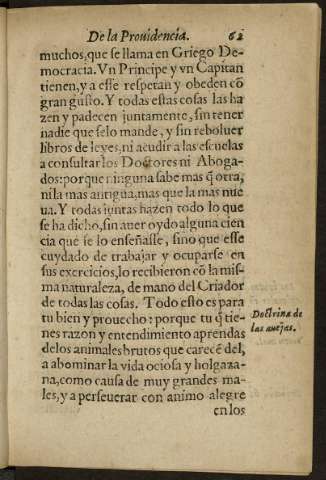 De la Prouidencia. 62
muchos, que se llama en Griego De-
mocracia. Vn Principe y vn Capitan
tienen, y a esse respetan y obeden cõ
gran gusto. Y todas estas cosas las ha
zen y padecen juntamente, sin tener
nadie que se lo mande, y sin reboluer
libros de leyes, ni acudir a las escuelas
a consultar los Doctores ni Aboga-
dos: porque ninguna sabe mas q̃ otra,
ni la mas antigua, mas que la mas nue
ua. Y todas iuntas hazen todo lo que
se ha dicho, sin auer oydo alguna cien
cia que se lo enseñasse, sino que esse
cuydado de trabajar y ocuparse en
sus exercicios, lo recibieron cõ la mis-
ma naturaleza, de mano del Criador
de todas las cosas. Todo esto es para
tu bien y prouecho: porque tu q̃ tie-
nes razon y entendimiento aprendas
de los animales brutos que carecẽ del,
a abominar la vida ociosa y holgaza-
na, como causa de muy grandes ma-
les, y a perseuerar con animo alegre
en los
Doctrina de
las auejas.